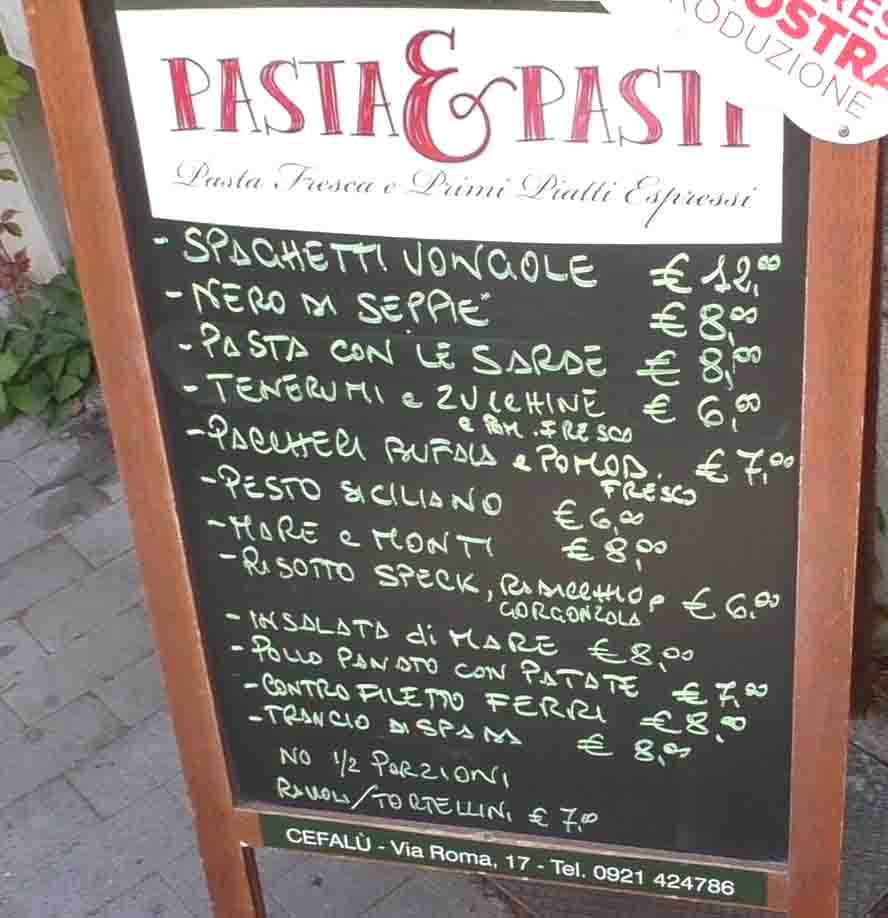 PASTA & PASTI
Pasta Fresca e Primi Piatti Espressi
OSTRA
RODUZIONE
- SPAGHETTI VONGOLE € 12,00
- NERO DI SEPPIE € 8,00
- PASTA CON LE SARDE € 8,00
- TENERUMI e ZUCCHINE € 6,00
e POM. FRESCO
- PACCHERI BUFALA e POMOD. € 7,00
FRESCO
- PESTO SICILIANO € 6,00
- MARE e MONTI € 8,00
- RISOTTO SPECK, RADICCHIO € 6,00
GORGONZOLA
- INSALATA di MARE € 8,00
- POLLO PANATO CON PATATE € 7,00
- CONTROFILETTO FERRI € 8,00
- TRANCIO DI SPADA € 8,00
NO 1/2 PORZIONI
RAVIOLI/TORTELLINI € 7,00
CEFALÙ - Via Roma, 17 - Tel. 0921 424786